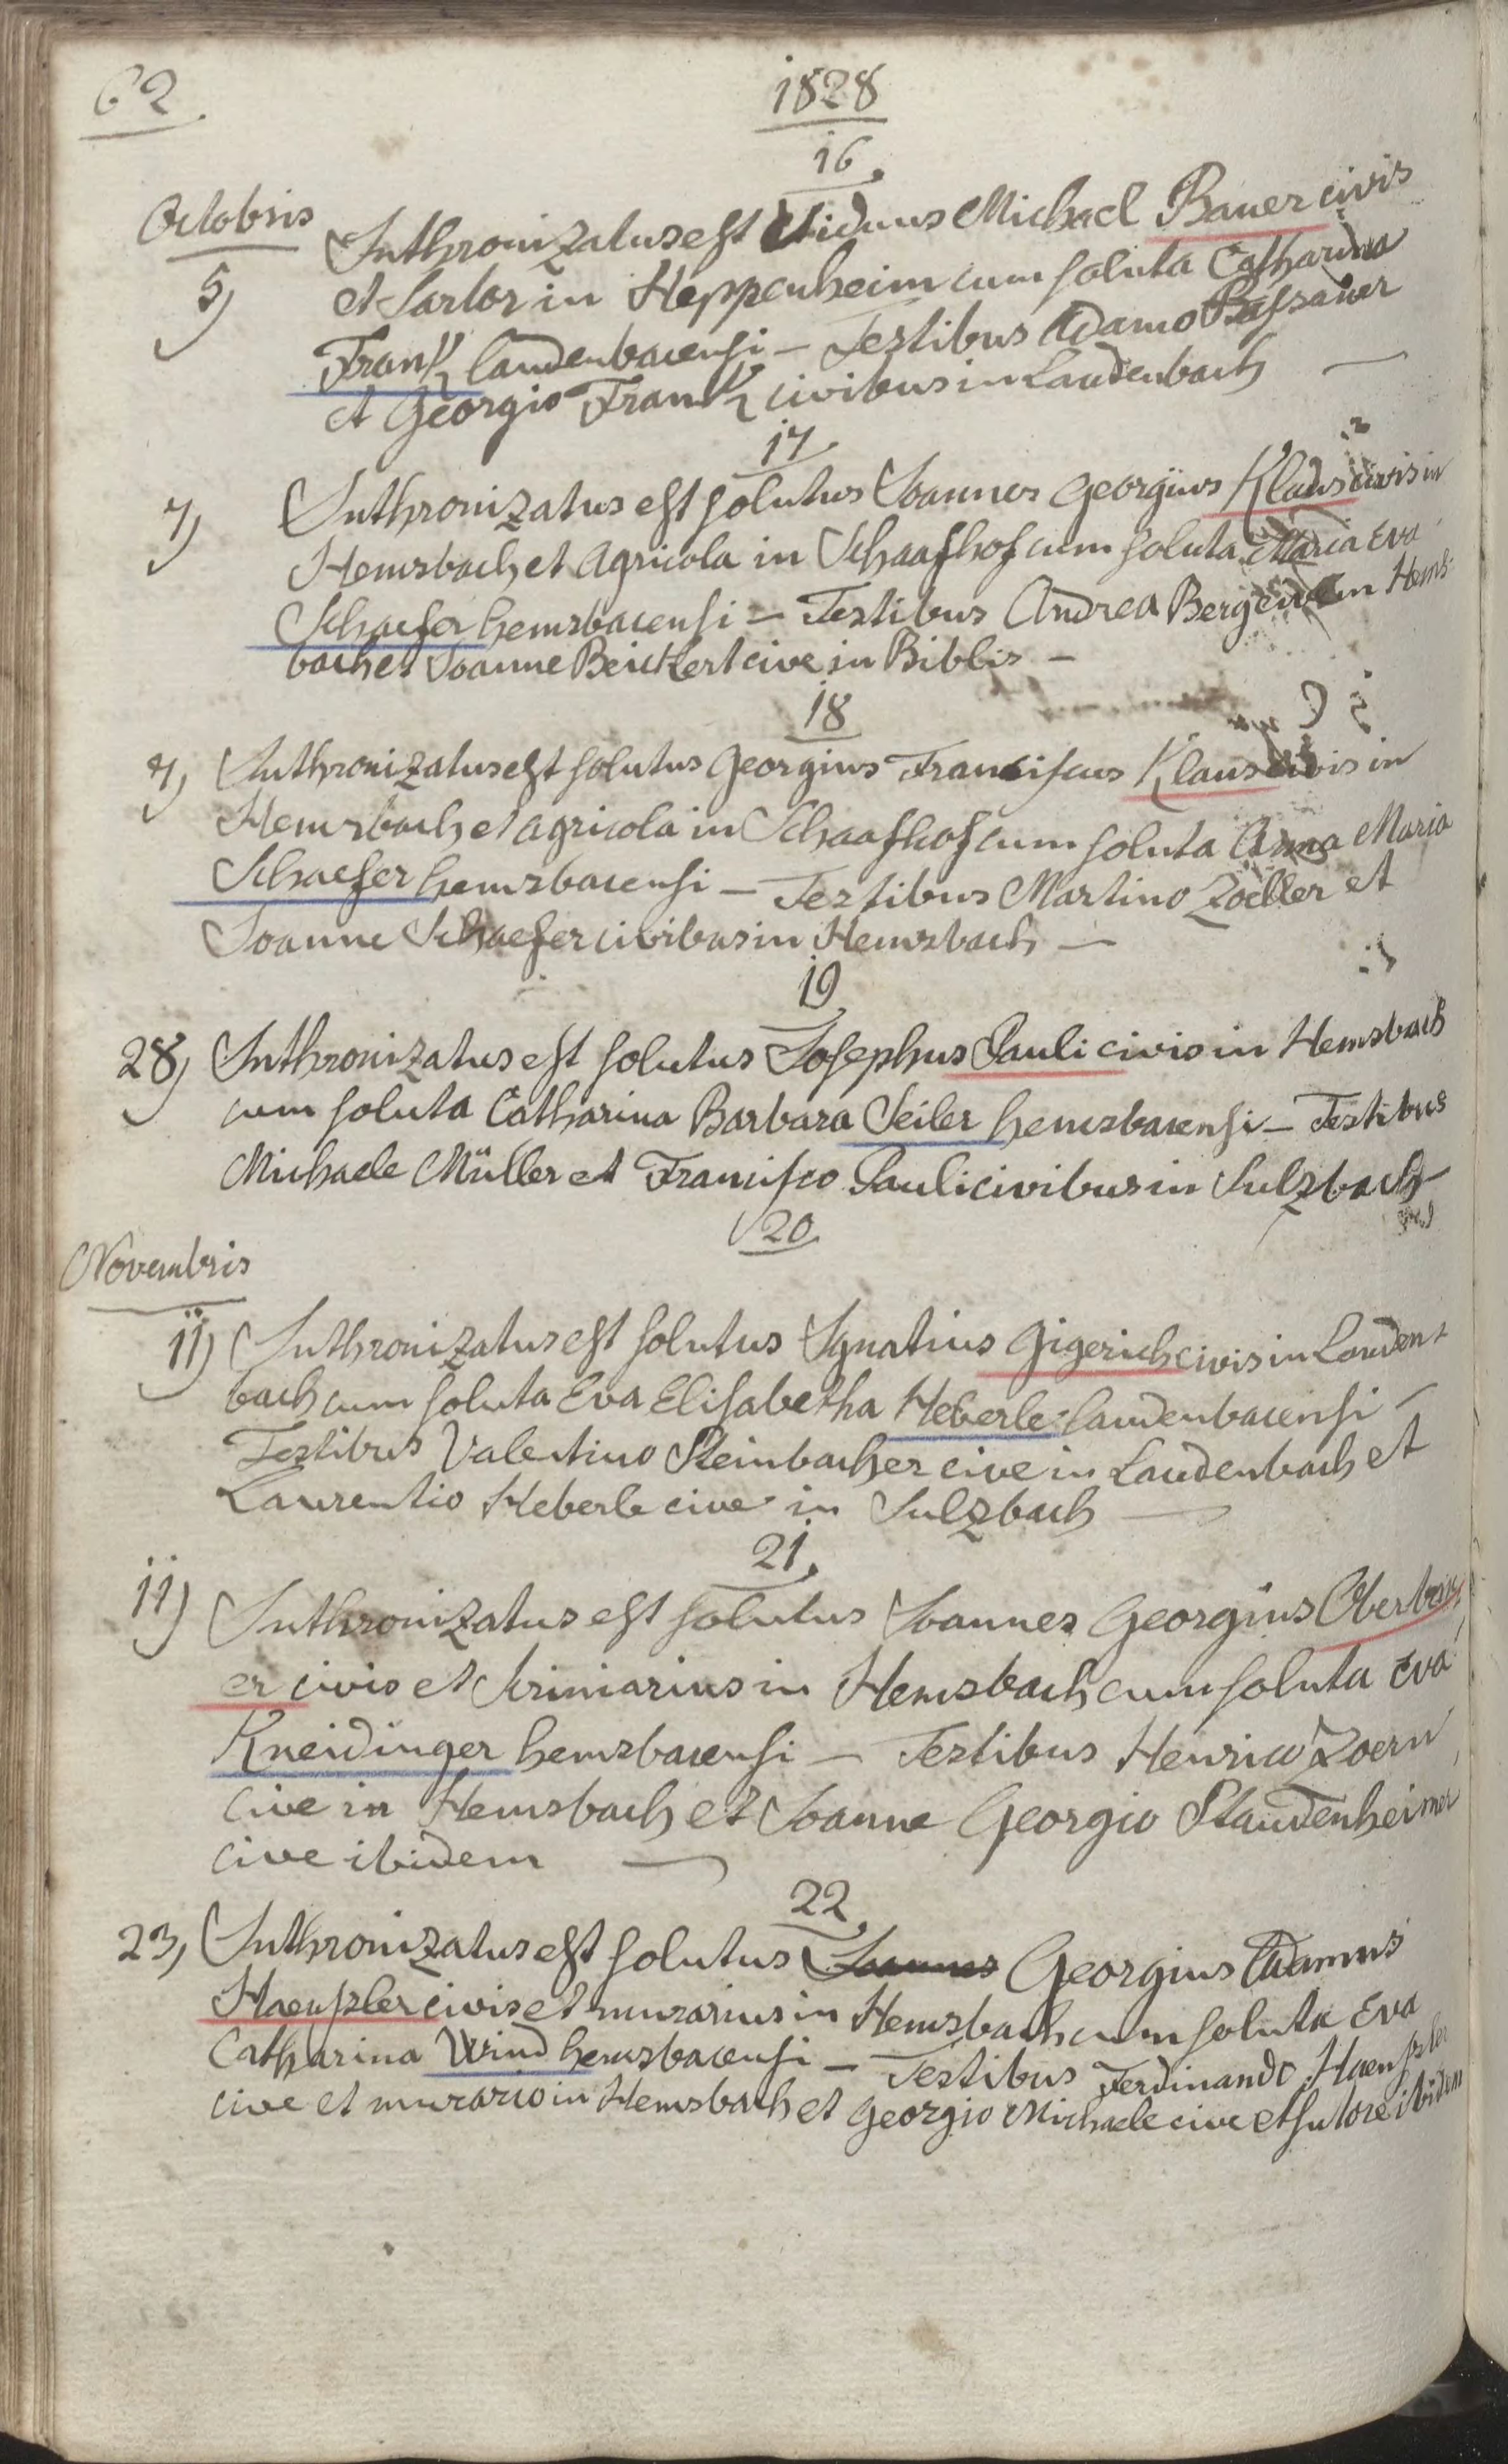 62
1828
16.
Octobris
5) Inthronizatus est Viduus Michael Bauer civis
et Sartor in Heppenheim cum soluta Catharina
Frank laudenbacensi – Testibus Adamo
et Georgio Frank civibus in Laudenbach —
17
7) Inthronizatus est solutus Joannes Georgius Klaus civis in
Hemsbach et Agricola in Schaafhof cum soluta Maria Eva
Schaefer hemsbacensi – Testibus Andrea in Hems-
bach et Joanne Beickert cive in Biblis –
18
7) Inthronizatus est solutus Georgius Franciscus Klaus civis in
Hemsbach et agricola in Schaafhof cum soluta Anna Maria
Schaefer hemsbacensi – Testibus Martino Zöller et
Joanne Schaefer civibus in Hemsbach –
19
28) Inthronizatus est solutus Josephus Pauli civis in Hemsbach
cum soluta Catharina Barbara Seiler hemsbacensi – Testibus
Michaele Müller et Francisco Pauli civibus in Sulzbach –
20
Novembris
11) Inthronizatus est solutus Ignatius Gigerich civis in Lauden-
bach cum soluta Eva Elisabetha Heberle laudenbacensi –
Testibus Valentino Steinbacher cive in Laudenbach et
Laurentio Heberle cive in Sulzbach —
21.
11) Inthronizatus est solutus Joannes Georgius
er civis et scriniarius in Hemsbach cum soluta Eva
Kneidinger hemsbacensi – Testibus Henrico Zoern
cive in Hemsbach et Joanne Georgio Staudenheimer
cive ibidem —
22.
23) Inthronizatus est solutus Joannes Georgius Adamus
Haenssler civis et murarius in Hemsbach cum soluta Eva
Catharina Wind hemsbacensi – Testibus Ferdinando Haenssler
cive et murario in Hemsbach et Georgio Michaele cive et sutore ibidem